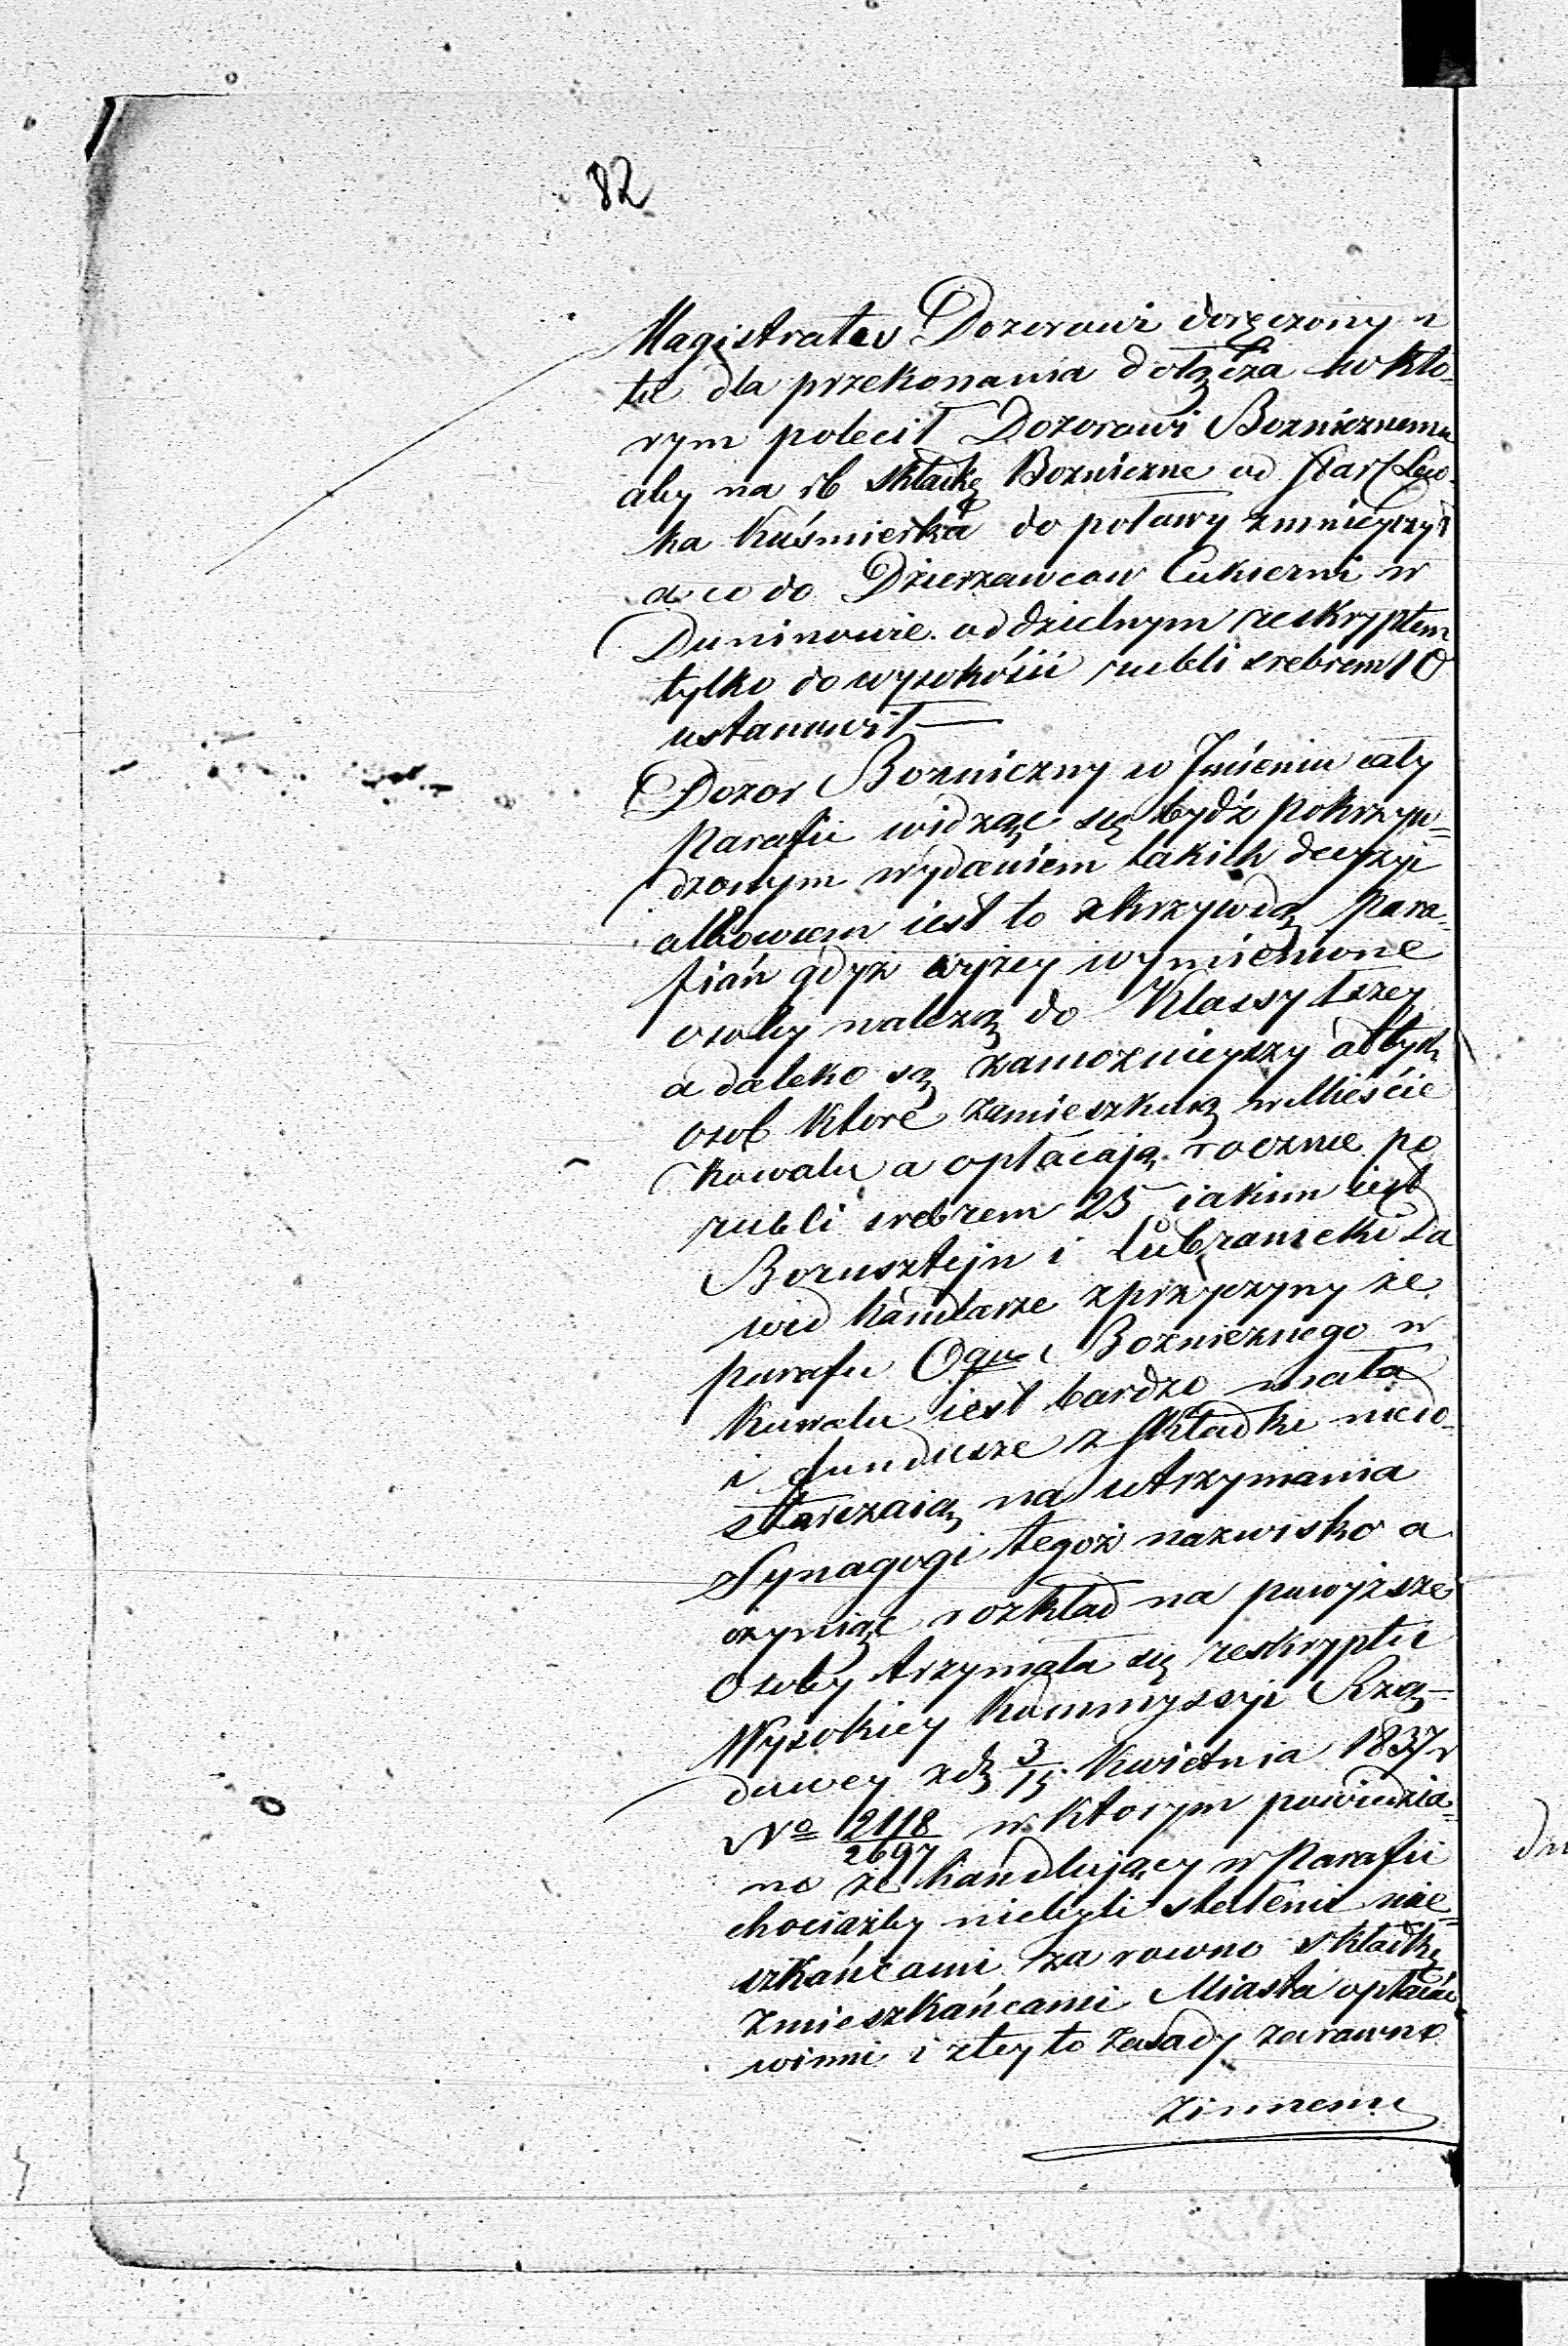 82
Magistratu Dozorowi doręczony i
tu dla przekonania dołącza w któ-
rym polecił Dozorowi Bozniczemu
aby na rb składkę Bozniczne od
ka Kuśmierka do połowy zmnieyszył
a co do Dzierzawcow Cukierni w
Duninowie oddzielnym reskryptem
tylko do wysokości rubli srebrem 10
ustanowił —
Dozor Bozniczny w Jmieniu cały
Parafii widząc się bydź pokrzyw=
dzonym wydaniem takich decyzji
albowiem iest to zkrzywdą Para-
fian gdyż wyżey wymienione
osoby należą do Klassy 1szey
a daleko są zamoznieyszy od tych
osob które zamieszkuią w Mieście
Kowalu a opłacają rocznie po
rubli srebrem 25 iakim iest
Borusztejn i Lubraniecki Da
wid handlarze zprzyczyny że
parafii Ogu Bozniczego w
Kowalu iest bardzo mała
i fundusze z składki niedo-
starczaią na utrzymania
Synagogi tegoż nazwisko a
czyniąc rozkład na powyższe
Osoby trzymała się reskryptu
Wysokiey Kommyssyi Rzą-
dowey zd 3/15 Kwietnia 1837 r
No 2118/2697 w ktorym powiedzia-
no że handlujący w Parafii
chociażby niebyli stałemi mie=
szkańcami za rowno składkę
zmieszkańcami Miasta opłacać
winni i ztey to zasady zarowno
zinnemi